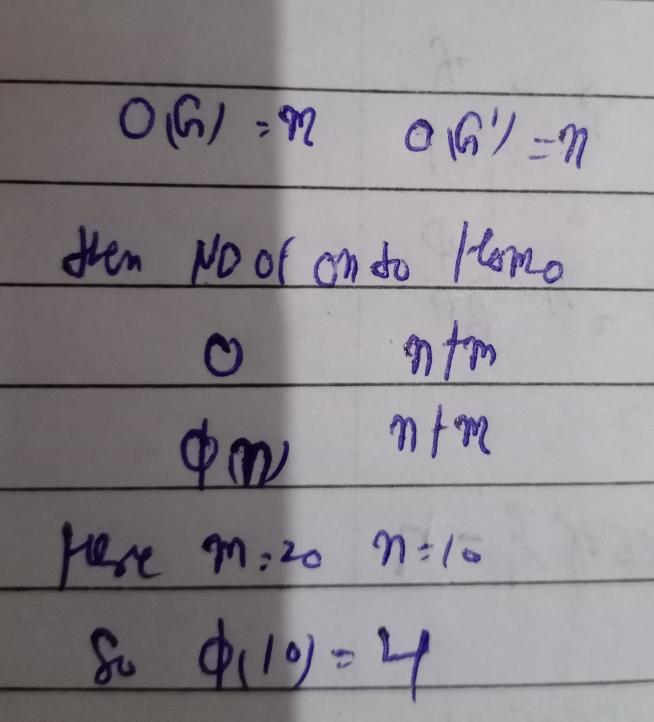 O(G) = m O(G') = n
then NO of onto Homo
0 n†m
ϕ(n) n†m
Here m=20 n=10
So ϕ(10) = 4